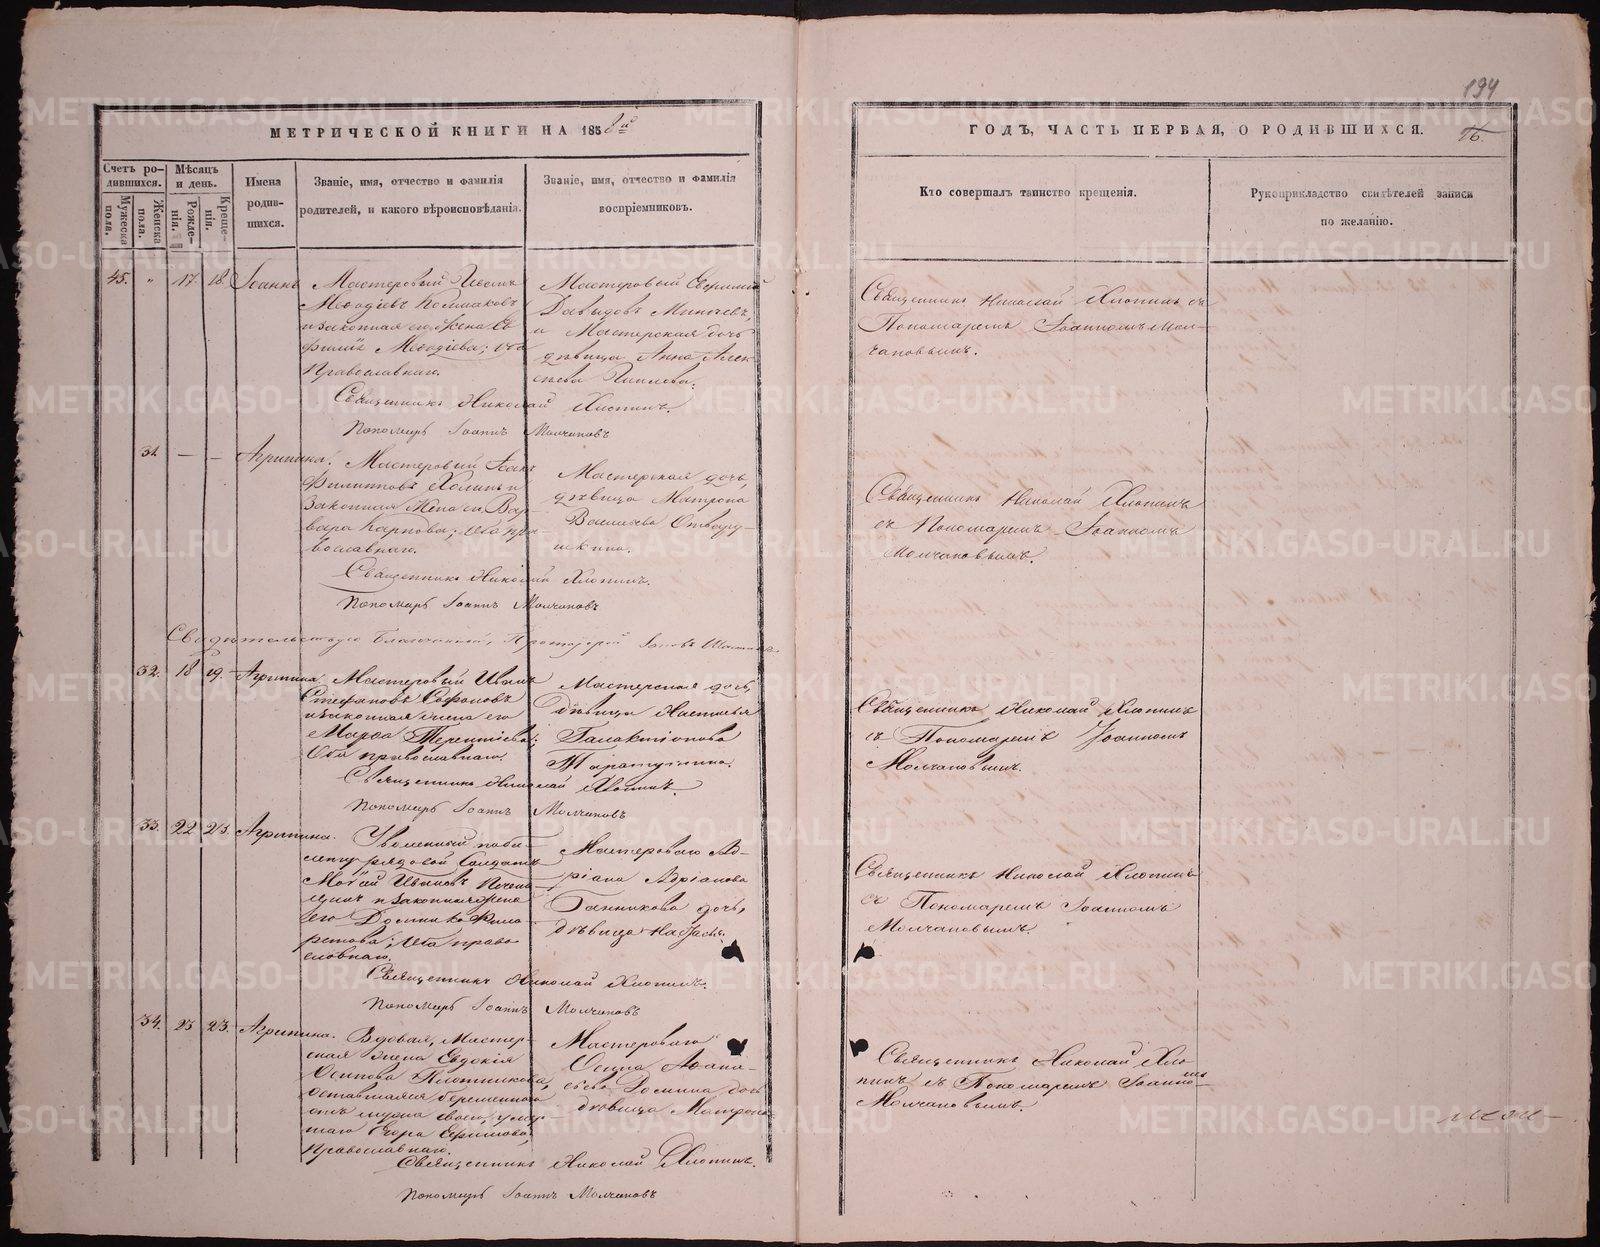 194
МЕТРИЧЕСКОЙ КНИГИ НА 1858й
ГОДЪ, ЧАСТЬ ПЕРВАЯ, О РОДИВШИХСЯ.
Счетъ родившихся.
Мужеска пола.
Женска пола.
Мѣсяцъ и день.
Рожденія.
Крещенія.
Имена родившихся.
Званіе, имя, отчество и фамилія
родителей, и какого вѣроисповѣданія.
Званіе, имя, отчество и фамилія
воспріемниковъ.
Кто совершалъ таинство крещенія.
Рукоприкладство свидѣтелей записи
по желанію.
45. " 17 18. Іоаннъ
Мастеровый
и законная его жена Ев
фимія Меѳодіева; оба
Православнаго.
Мастеровый
Давыдовъ
и Мастерская дочь
дѣвица Анна Алек
сѣева
Священникъ Николай Хлопинъ съ
Пономаремъ Іоанномъ Мол-
чановымъ.
Священникъ Николай Хлопинъ.
Пономарь Іоаннъ Молчановъ
31. — — Агрипина.
Мастеровый
Филипповъ
законная жена его Вар
вара Карпова; оба пра
вославнаго.
Мастерская дочь,
дѣвица Матрона
Васильева
Священникъ Николай Хлопинъ
съ Пономаремъ Іоанномъ
Молчановымъ.
Священникъ Николай Хлопинъ.
Пономарь Іоаннъ Молчановъ
Свидѣтельствую Благочинный, Протоіерей
32. 18 19. Агрипина.
Мастеровый Иванъ
Стефановъ Сафоновъ
и законная жена его
Марѳа Терентіева;
Оба православнаго.
Мастерская дочь,
Дѣвица Настасья
Галактіонова
Священникъ Николай Хлопинъ
съ Пономаремъ Іоанномъ
Молчановымъ.
Священникъ Николай Хлопинъ.
Пономарь Іоаннъ Молчановъ
33. 22 23. Агрипина.
Уволенный по би-
лету рядовой Солдатъ
Ивановъ
и законная жена
его Домника Фила
ретова; оба право
славнаго.
Мастероваго Ад-
ріана Адріанова
Банникова дочь,
дѣвица
Священникъ Николай Хлопинъ
съ Пономаремъ Іоанномъ
Молчановымъ.
Священникъ Николай Хлопинъ.
Пономарь Іоаннъ Молчановъ
34. 23 23. Агрипина.
Вдовая, Мастер-
ская жена Евдокія
Осипова Плотникова,
оставшаяся беременною
отъ мужа своего умер
шаго Егора Ефимова,
Православнаго.
Мастероваго
Осипа Аѳана-
сьева дочь
дѣвица Матрона
Священникъ Николай Хло
пинъ съ Пономаремъ Іоанномъ
Молчановымъ.
Священникъ Николай Хлопинъ.
Пономарь Іоаннъ Молчановъ
METRIKI.GASO-URAL.RU